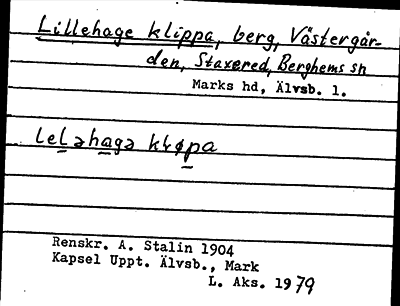 Lillehage klippa, berg, Västergår-
den, Staxered, Berghems sn
Marks hd, Älvsb. l.
leLəhaga
Renskr. A. Stalin 1904
Kapsel Uppt. Älvsb., Mark
L. Aks. 1979